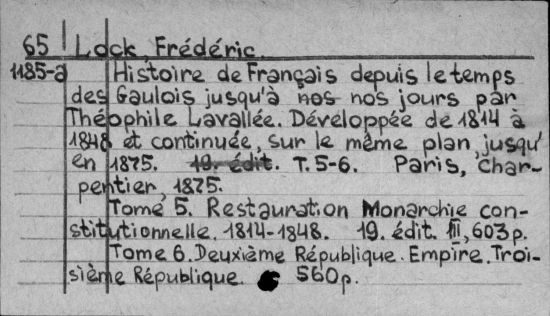 65 Lock, Frédéric.
1185-a Histoire de Français depuis le temps
des Gaulois jusqu'à nos nos jours par
Théophile Lavallée. Développée de 1814 à
1848 et continuée, sur le même plan, jusqu'
en 1875. 19. édit. T. 5-6. Paris, Char-
pentier, 1875.
Tome 5. Restauration Monarchie con-
stitutionnelle. 1814-1848. 19. édit. III, 603 p.
Tome 6. Deuxième République. Empire. Troi-
sième République. 560 p.